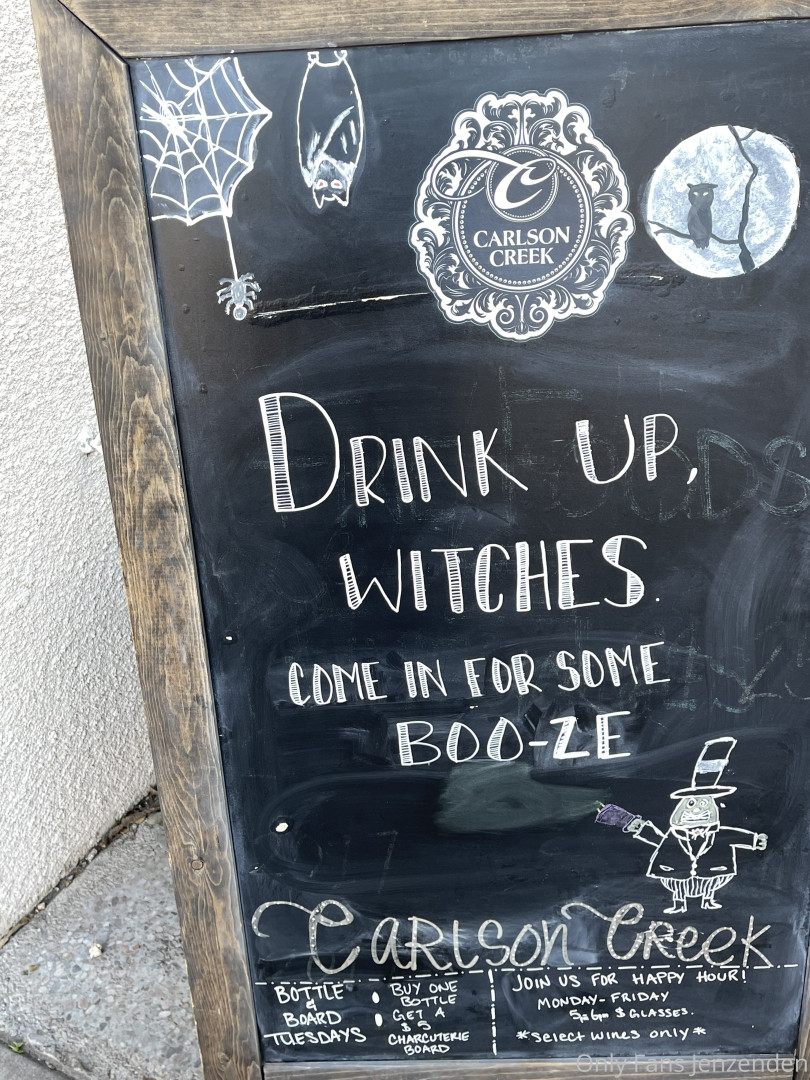 C
CARLSON
CREEK
DRINK UP,
WITCHES.
COME IN FOR SOME
BOO-ZE
CARLSON CREEK
BOTTLE
&
BOARD
TUESDAYS
• BUY ONE
BOTTLE
• GET A
$5
CHARCUTERIE
BOARD
JOIN US FOR HAPPY HOUR!
MONDAY-FRIDAY
GLASSES.
*Select wines only*
Only Fans jenzenden